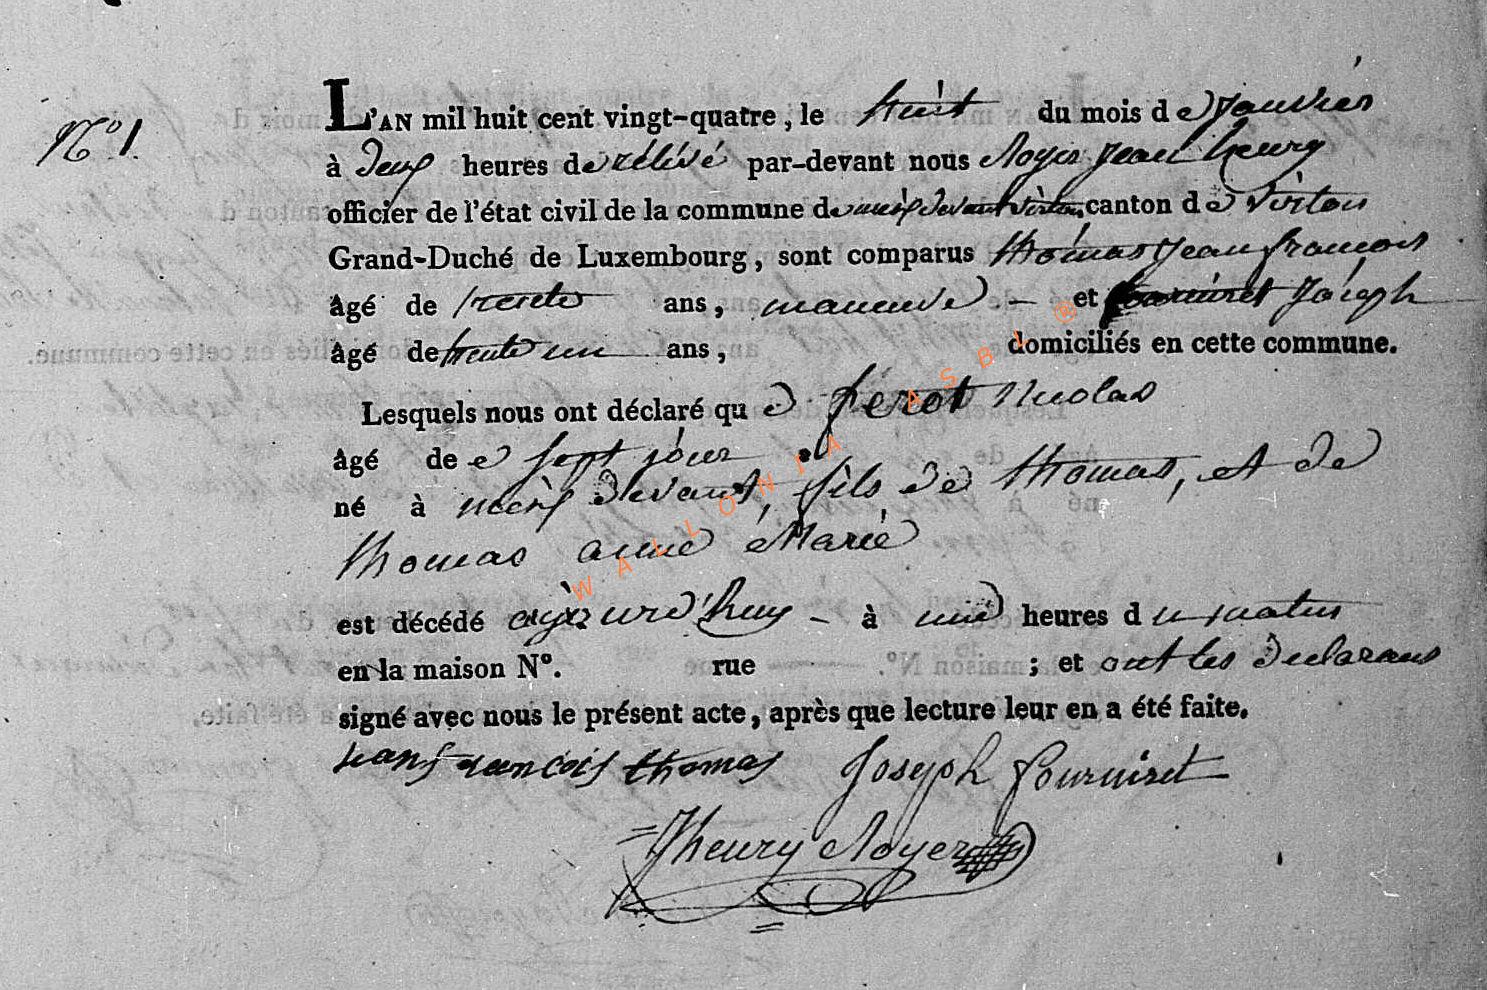 N° 1.
L'AN mil huit cent vingt-quatre, le huit du mois de Janvier
à deux heures de rélévé par-devant nous Noyer Jean henry
officier de l'état civil de la commune de meix devant virton canton de virton
Grand-Duché de Luxembourg, sont comparus thomas Jean françois
âgé de trente ans, maneuvre — et fourniret Joseph
âgé de trente un ans, domiciliés en cette commune.
Lesquels nous ont déclaré que férot Nicolas
âgé de sept jour
né à meix devant, fils de thomas, et de
thomas anne Marie
est décédé aujourd'huy - à une heures du matin
en la maison N°. rue ; et ont les declarans
signé avec nous le présent acte, après que lecture leur en a été faite.
Jean francois thomas Joseph fourniret
Jhenry Noyer
WALLONIA ASBL ®